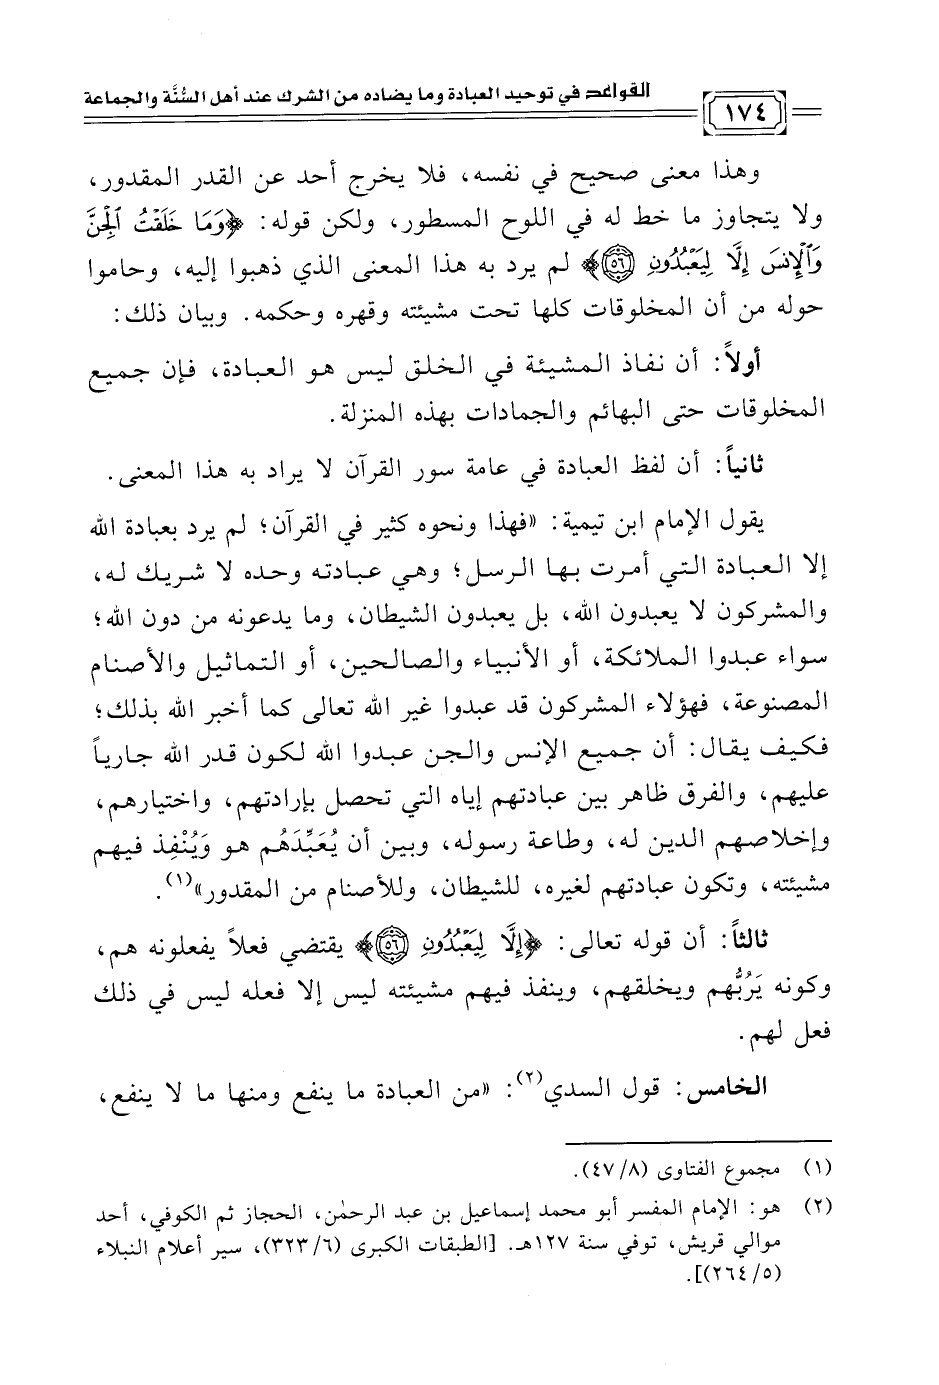 القواعد في توحيد العبادة وما يضاده من الشرك عند أهل السُّنَّة والجماعة
١٧٤
وهذا معنى صحيح في نفسه، فلا يخرج أحد عن القدر المقدور،
ولا يتجاوز ما خط له في اللوح المسطور، ولكن قوله: ﴿وَمَا خَلَقْتُ ٱلْجِنَّ
وَٱلْإِنسَ إِلَّا لِيَعْبُدُونِ ۝٥٦﴾ لم يرد به هذا المعنى الذي ذهبوا إليه، وحاموا
حوله من أن المخلوقات كلها تحت مشيئته وقهره وحكمه. وبيان ذلك:
أولاً: أن نفاذ المشيئة في الخلق ليس هو العبادة، فإن جميع
المخلوقات حتى البهائم والجمادات بهذه المنزلة.
ثانياً: أن لفظ العبادة في عامة سور القرآن لا يراد به هذا المعنى.
يقول الإمام ابن تيمية: «فهذا ونحوه كثير في القرآن؛ لم يرد بعبادة الله
إلا العبادة التي أمرت بها الرسل؛ وهي عبادته وحده لا شريك له،
والمشركون لا يعبدون الله، بل يعبدون الشيطان، وما يدعونه من دون الله؛
سواء عبدوا الملائكة، أو الأنبياء والصالحين، أو التماثيل والأصنام
المصنوعة، فهؤلاء المشركون قد عبدوا غير الله تعالى كما أخبر الله بذلك؛
فكيف يقال: أن جميع الإنس والجن عبدوا الله لكون قدر الله جارياً
عليهم، والفرق ظاهر بين عبادتهم إياه التي تحصل بإرادتهم، واختيارهم،
وإخلاصهم الدين له، وطاعة رسوله، وبين أن يُعَبِّدَهُم هو وَيُنْفِذ فيهم
مشيئته، وتكون عبادتهم لغيره، للشيطان، وللأصنام من المقدور»(١).
ثالثاً: أن قوله تعالى: ﴿إِلَّا لِيَعْبُدُونِ ۝٥٦﴾ يقتضي فعلاً يفعلونه هم،
وكونه يَرُبُّهم ويخلقهم، وينفذ فيهم مشيئته ليس إلا فعله ليس في ذلك
فعل لهم.
الخامس: قول السدي(٢): «من العبادة ما ينفع ومنها ما لا ينفع،
(١) مجموع الفتاوى (٤٧/٨).
(٢) هو: الإمام المفسر أبو محمد إسماعيل بن عبد الرحمٰن، الحجاز ثم الكوفي، أحد
موالي قريش، توفي سنة ١٢٧هـ. [الطبقات الكبرى (٣٢٣/٦)، سير أعلام النبلاء
(٢٦٤/٥)].